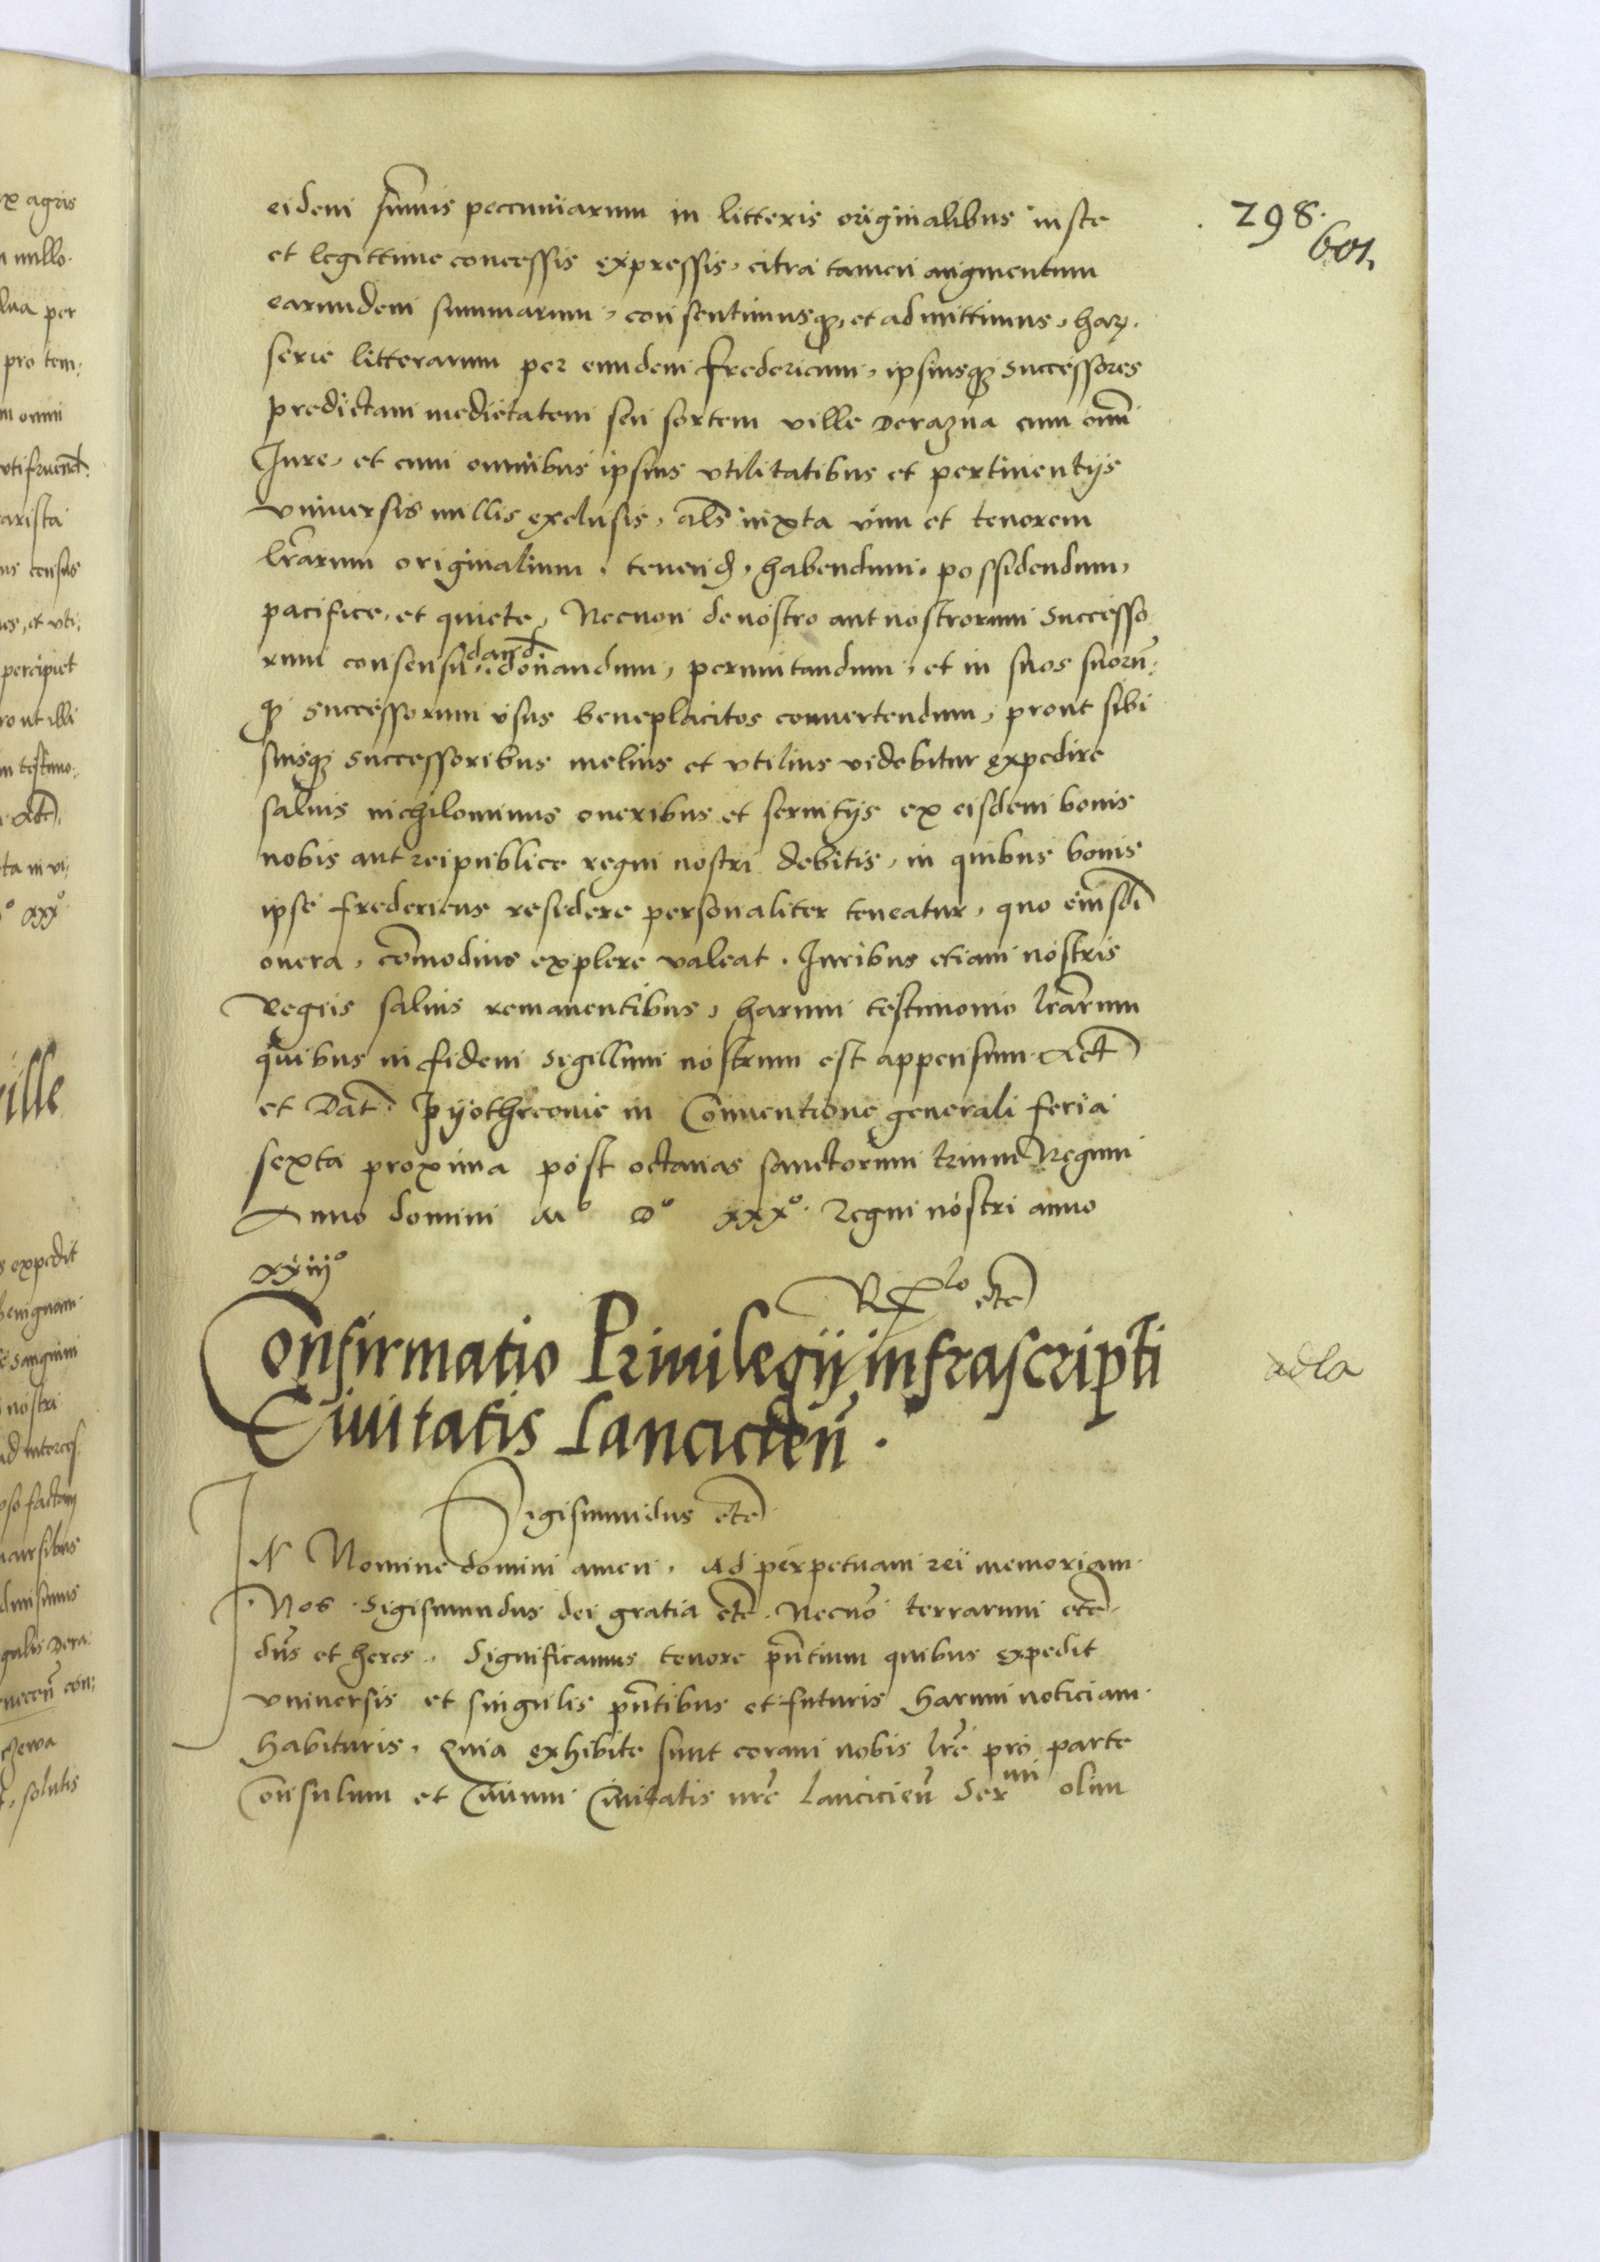 298.
601.
eideni sum̄is peccuniarum in litteris originalibus iuste
et legittime concessis expressis, citra tamen augmentum
earundem summarum, consentimusq₃, et admittimus, haꝝ.
serie litterarum per eundem fredericum, ipsiusq₃ successores
predictam medietatem seu sortem ville Derazna cum om̄i
Jure, et cum omnibus ipsius vtilitatibus et pertinentijs
vniuersis nullis exclusis, als̄ iuxta vim et tenorem
lr̄arum originalium, tenend, habendum, possidendum,
pacifice, et quiete, Necnon de nostro aut nostrorum Successo
rum consensu, dand donandum, permutandum, et in suos suorū:
q₃ successorum vsus beneplacitos conuertendum, prout sibi
suisq₃ Successoribus melius et vtilius videbitur expedire
saluis nichilominus oneribus et seruitijs ex eisdem bonis
nobis aut reipublice regni nostri debitis, in quibus bonis
ipse fredericus residere personaliter teneatur, quo eiusd̄i
onera, com̄odius explere valeat. Juribus etiam nostris
Regiis saluis remanentibus, harum testimonio lr̄arum
quibus in fidem Sigillum nostrum est appensum. Act
et Dat. Pyothrconie in Conuentione generali feria
sexta proxima post octauas sanctorum trium Regum
Anno domini Mº Dº xxxº. Regni nostri anno
xxiiijº
Rlo etc̄
Confirmatio Priuilegij infrascripti
Ciuitatis Lancicień.
Sigismundus etc̄
IN Nomine domini amen. Ad perpetuam rei memoriam.
Nos Sigismundus dei gratia etc̄. Necnō terrarum etc̄.
dn̄s et heres. Significamus tenore pn̄tium quibus expedit
vniuersis et singulis pn̄tibus et futuris harum noticiam
habituris. Quia exhibite sunt coram nobis lr̄e pro parte
Consulum et Ciuium Ciuitatis nr̄e Lancicień Ser^mi olim